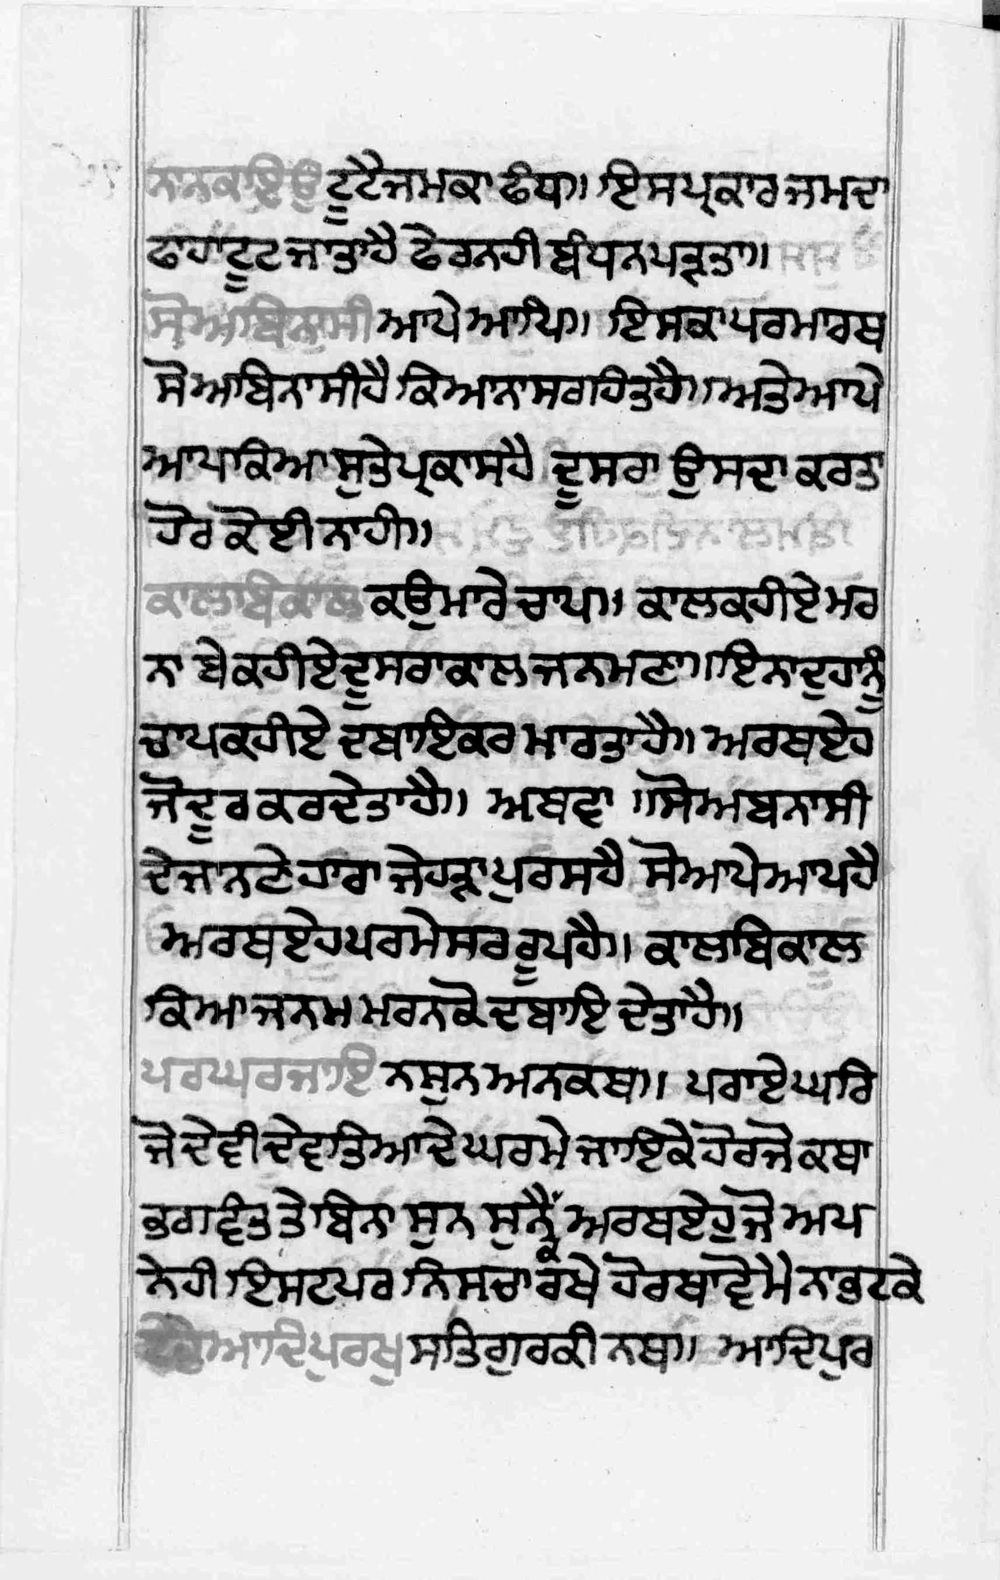 ਨਾਨਕ ਇਉ ਟੂਟੈ ਜਮ ਕਾ ਫੰਧਾ॥ ਇਸ ਪ੍ਰਕਾਰ ਜਮ ਦਾ
ਫਾਹਾ ਟੂਟ ਜਾਤਾ ਹੈ ਫੇਰ ਨਹੀ ਬੰਧਨ ਪੜਤਾ॥
ਸੋ ਅਬਿਨਾਸੀ ਆਪੇ ਆਪਿ॥ ਇਸ ਕਾ ਪਰਮਾਰਥ
ਸੋ ਅਬਿਨਾਸੀ ਹੈ ਕਿਆ ਨਾਸ ਰਹਿਤ ਹੈ॥ ਅਤੇ ਆਪੇ
ਆਪ ਕਿਆ ਸੁਤੇ ਪ੍ਰਕਾਸ ਹੈ ਦੂਸਰਾ ਉਸ ਦਾ ਕਰਤਾ
ਹੋਰ ਕੋਈ ਨਾਹੀ॥
ਕਾਲ ਬਿਕਾਲ ਕਉ ਮਾਰੇ ਚਾਪ॥ ਕਾਲ ਕਹੀਏ ਮਰ
ਨਾ ਬੇ ਕਹੀਏ ਦੂਸਰਾ ਕਾਲ ਜਨਮਣਾ॥ ਇਨਾ ਦੁਹ ਨੂੰ
ਚਾਪ ਕਹੀਏ ਦਬਾਇ ਕਰ ਮਾਰਤਾ ਹੈ॥ ਅਰਥ ਏਹ
ਜੋ ਦੂਰ ਕਰ ਦੇਤਾ ਹੈ॥ ਅਥਵਾ ॥ ਸੋ ਅਬਨਾਸੀ
ਦੇ ਜਾਨਣੇ ਹਾਰਾ ਜੇਹੜਾ ਪੁਰਸ ਹੈ ਸੋ ਆਪੇ ਆਪ ਹੈ
ਅਰਥ ਏਹ ਪਰਮੇਸਰ ਰੂਪ ਹੈ॥ ਕਾਲ ਬਿਕਾਲ
ਕਿਆ ਜਨਮ ਮਰਨ ਕੋ ਦਬਾਇ ਦੇਤਾ ਹੈ॥
ਪਰ ਘਰ ਜਾਇ ਨ ਸੁਨ ਅਨ ਕਥਾ॥ ਪਰਾਏ ਘਰਿ
ਜੋ ਦੇਵੀ ਦੇਵਤਿਆ ਦੇ ਘਰ ਮੇ ਜਾਇਕੈ ਹੋਰ ਜੋ ਕਥਾ
ਭਗਵੰਤ ਤੇ ਬਿਨਾ ਸੁਨ ਸੁਨੈ ਅਰਥ ਏਹੁ ਜੋ ਅਪ
ਨੇ ਹੀ ਇਸਟ ਪਰ ਨਿਸਚਾ ਰਖੇ ਹੋਰ ਥਾਵੋ ਮੈ ਨਾ ਭਟਕੇ
ਆਦਿ ਪੁਰਖੁ ਸਤਿਗੁਰ ਕੀ ਨਥਾ॥ ਆਦਿ ਪੁਰ